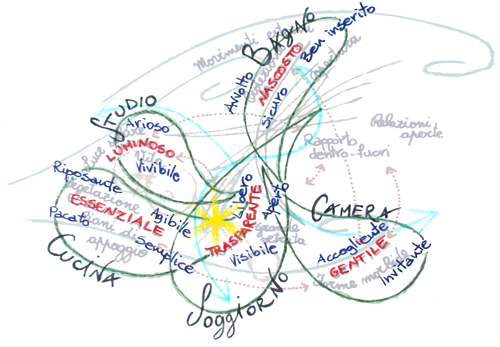 BAGNO
Avvolto
NASCOSTO
Sicuro
Ben inserito
Movimenti
STUDIO
Arioso
LUMINOSO
Vivibile
Rapporto
dentro-fuori
Relazioni
aperte
Riposante
ESSENZIALE
Pacato
Agibile
Semplice
piani di
appoggio
CUCINA
Libero
TRASPARENTE
Aperto
Visibile
Grande
SOGGIORNO
CAMERA
Accogliente
GENTILE
Invitante
Forme morbide